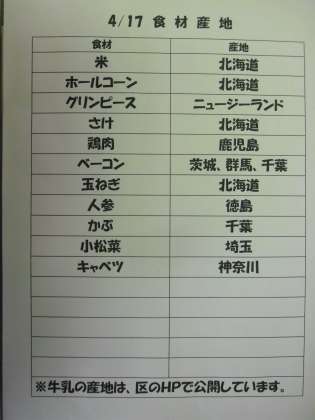 4/17 食材産地
食材 産地
米 北海道
ホールコーン 北海道
グリンピース ニュージーランド
さけ 北海道
鶏肉 鹿児島
ベーコン 茨城、群馬、千葉
玉ねぎ 北海道
人参 徳島
かぶ 千葉
小松菜 埼玉
キャベツ 神奈川
※牛乳の産地は、区のHPで公開しています。